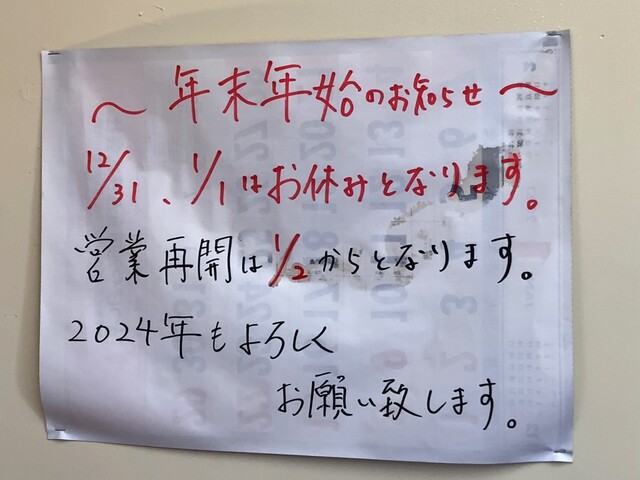 ～年末年始のお知らせ～
12/31、1/1はお休みとなります。
営業再開は1/2からとなります。
2024年もよろしく
お願い致します。